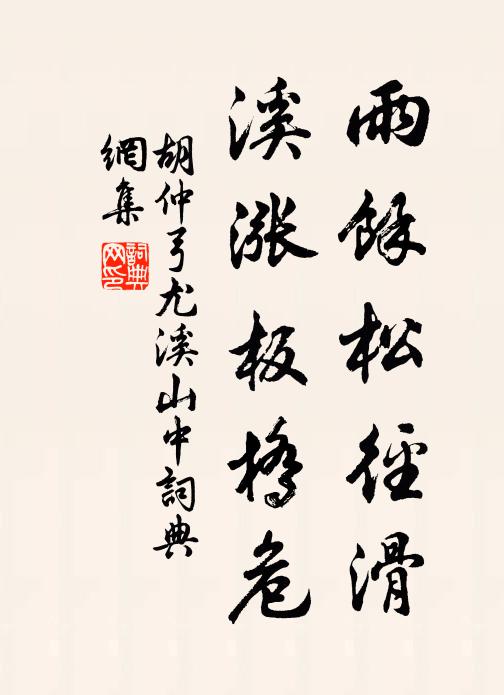 雨餘松徑滑
溪漲板橋危
胡仲弓尤溪山中詞典
網集
詞典网印